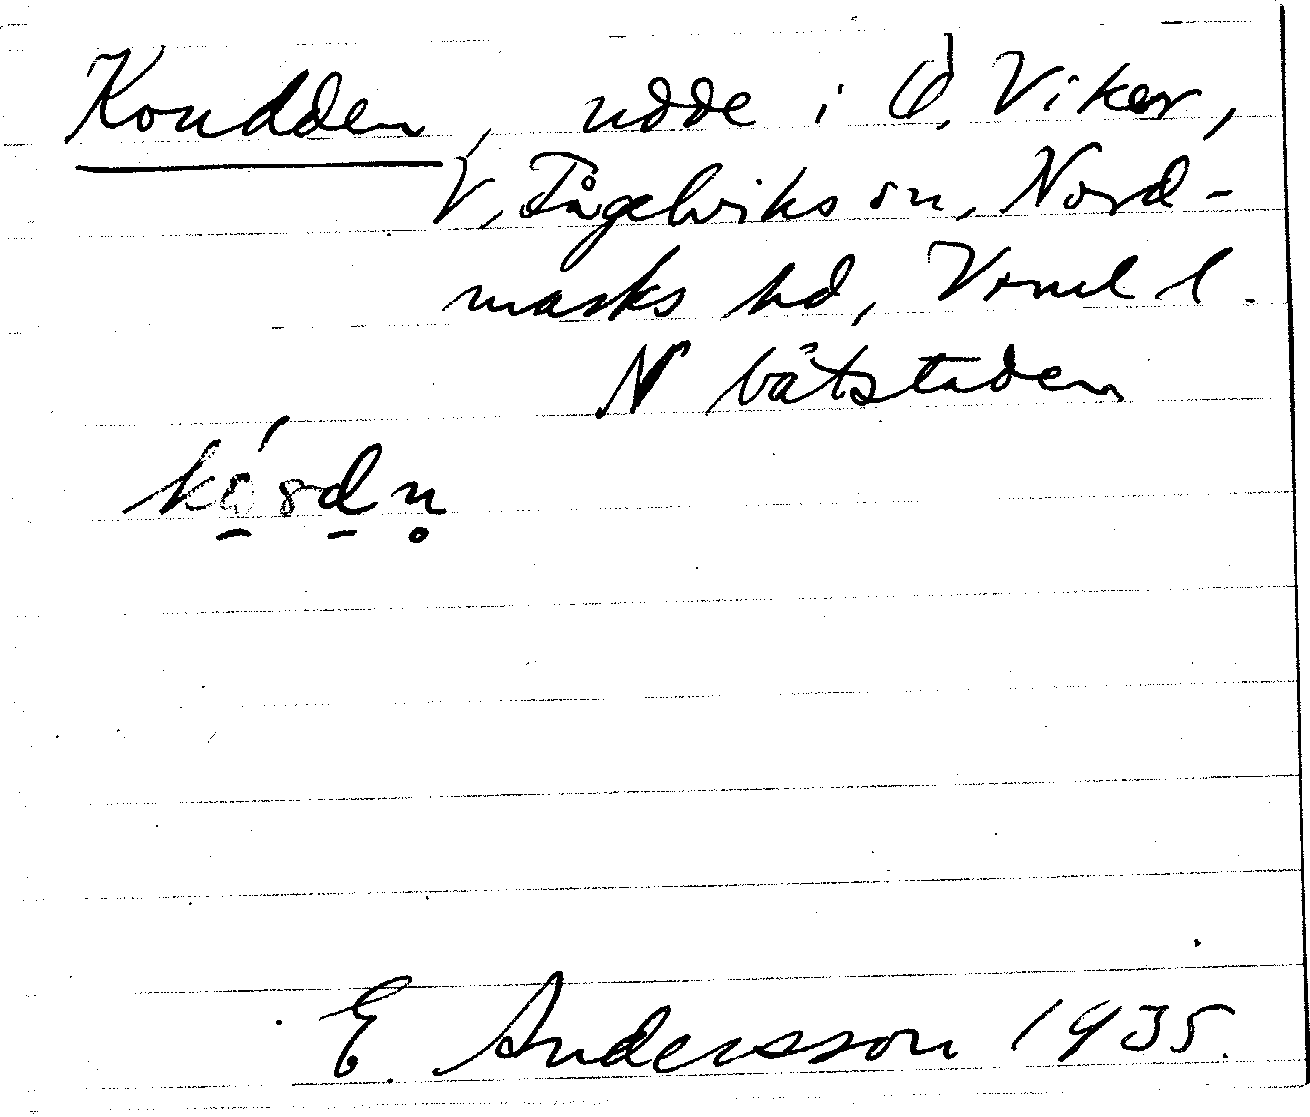 Koudden, udde i Ö, Viker,
V, Fågelviks sn, Nord-
marks hd, Vrml l.
N båtstaden
E. Andersson 1935.